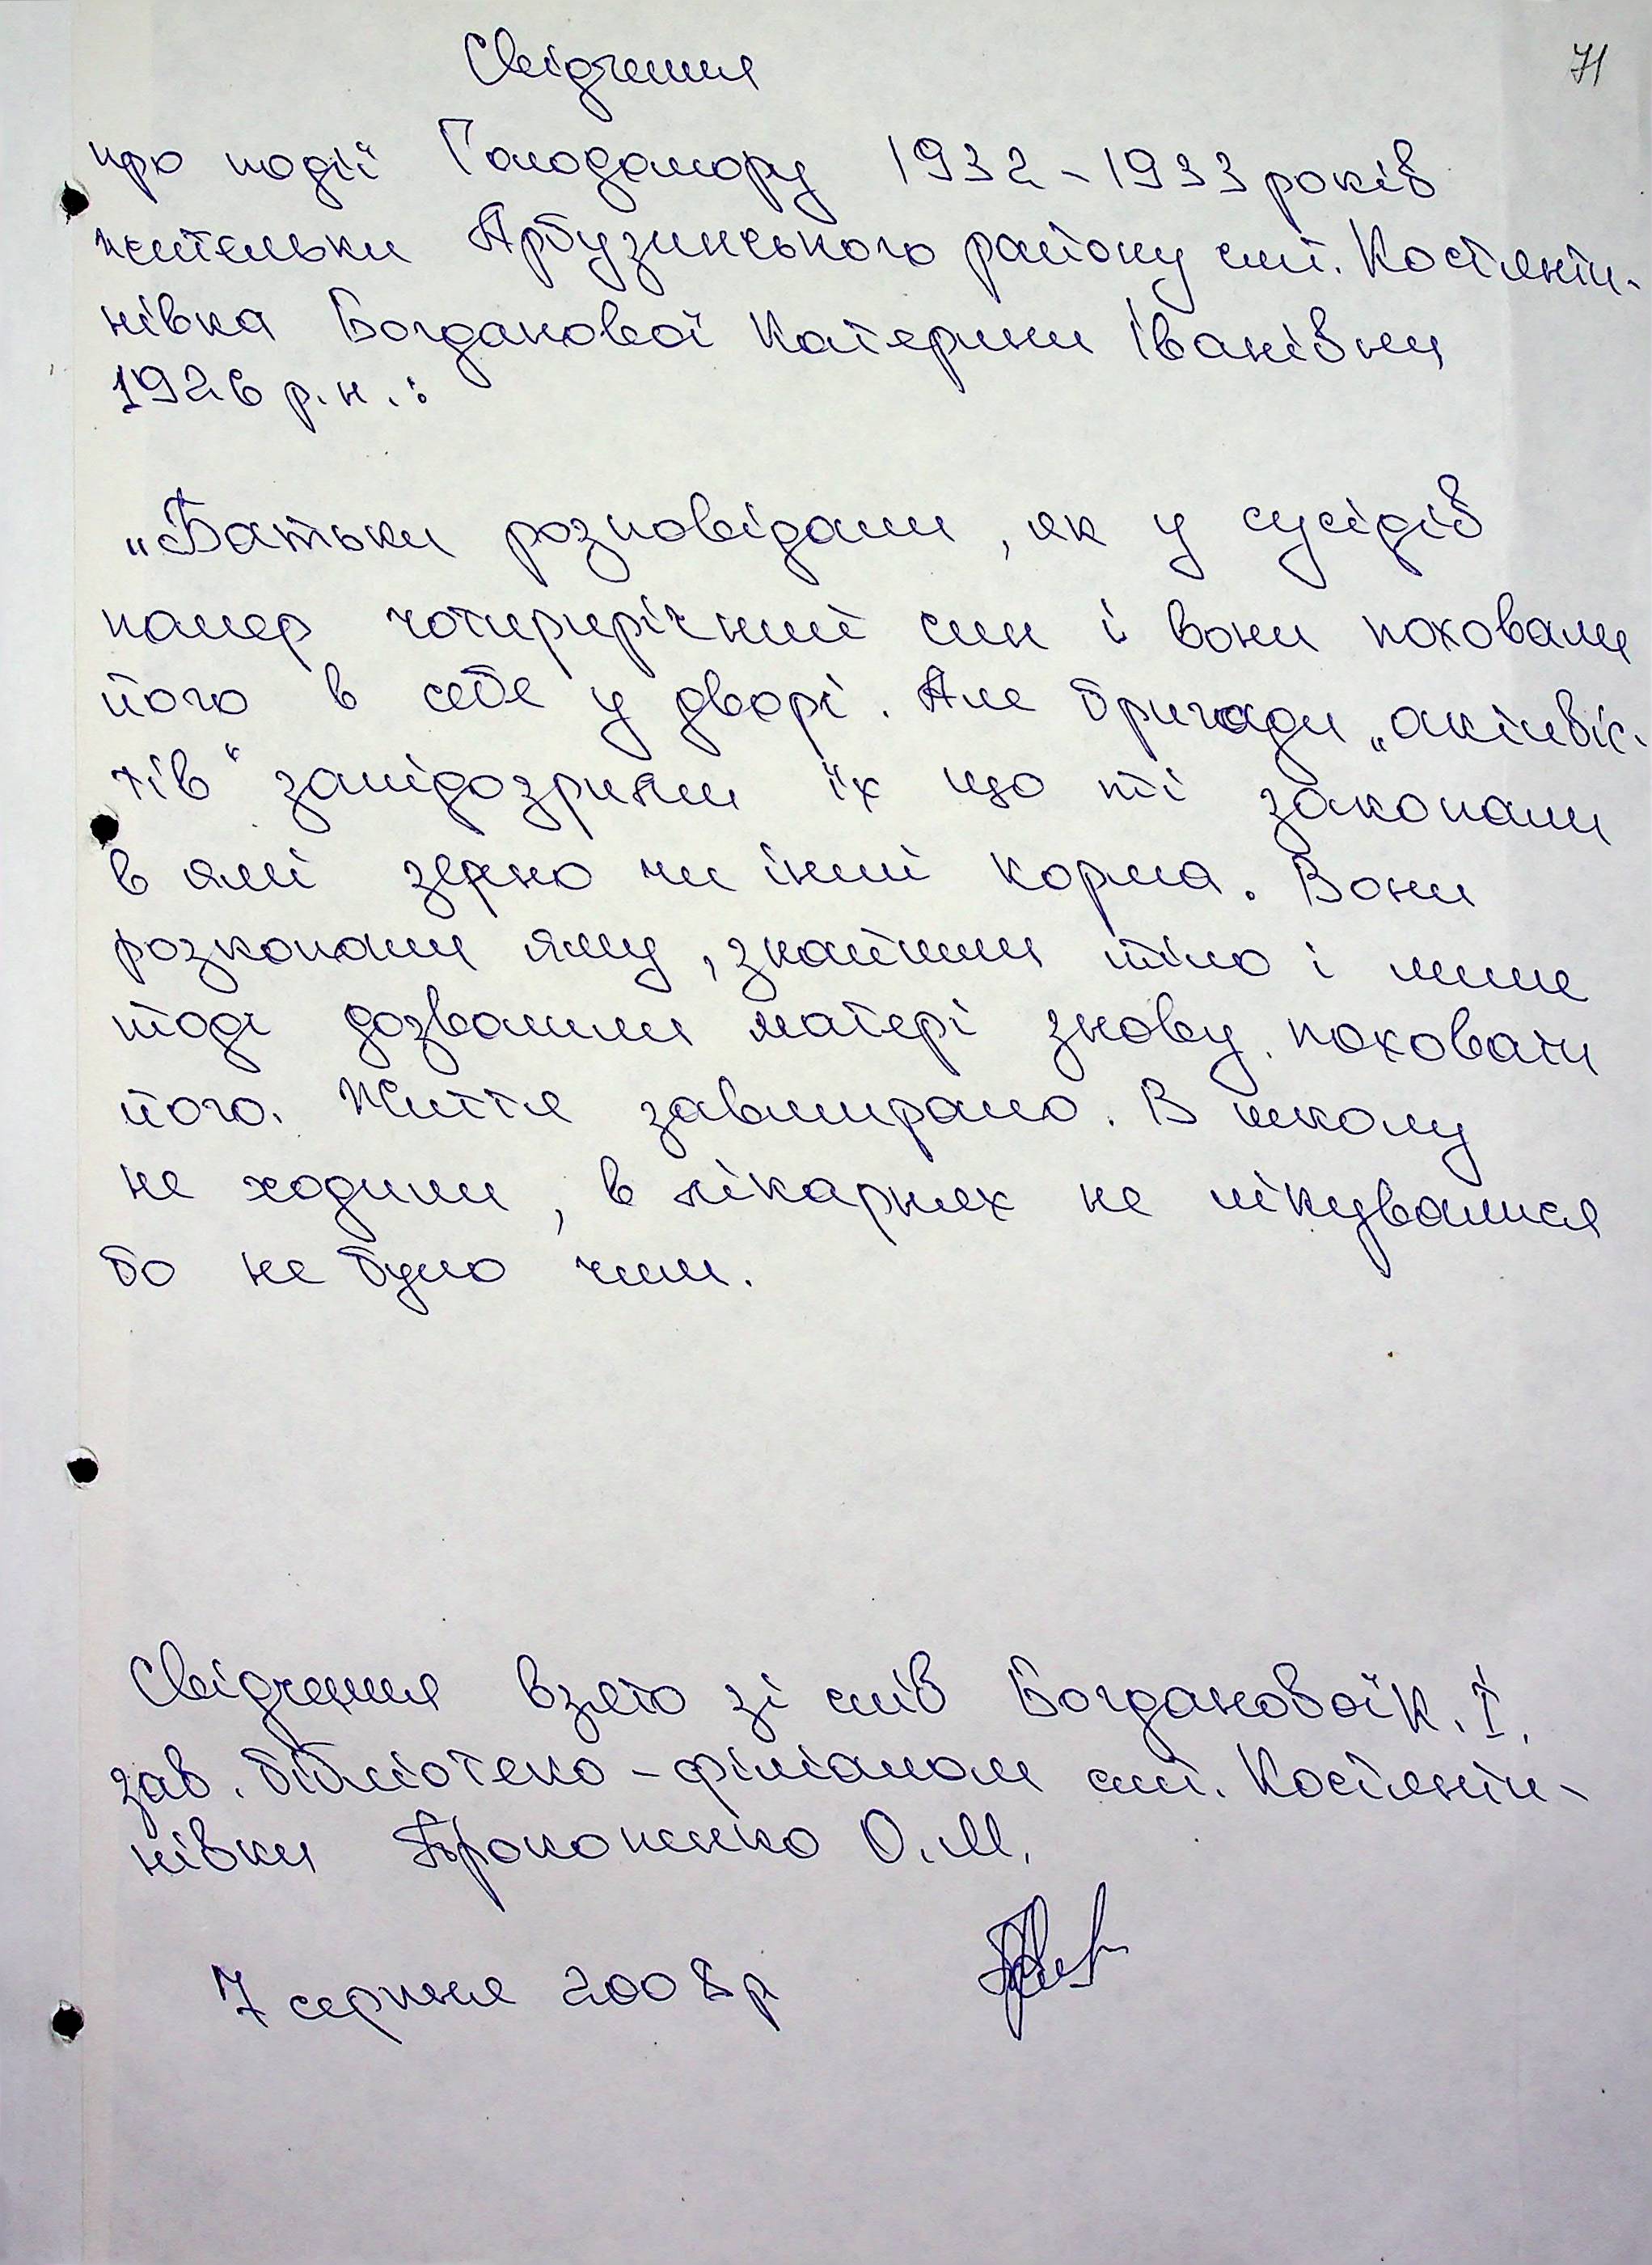 71
Свідчення
про події Голодомору 1932-1933 років
жительки Арбузинського району смт. Костянти-
нівка Богданової Катерини Іванівни
1926 р.н.:
„Батьки розповідали, як у сусідів
помер чотирирічний син і вони поховали
його в себе у дворі. Але бригади „активіс-
тів“ запідозрили їх що ті закопали
в ямі зерно чи інші корма. Вони
розкопали яму, знайшли тіло і лише
тоді дозволили матері знову поховати
його. Життя завмирало. В школу
не ходили, в лікарнях не лікувалися
бо не було чим.
Свідчення взято зі слів Богданової К.І.
зав. бібліотеко-філіалом смт. Костянти-
нівки Прокопенко О.М.
7 серпня 2008 р